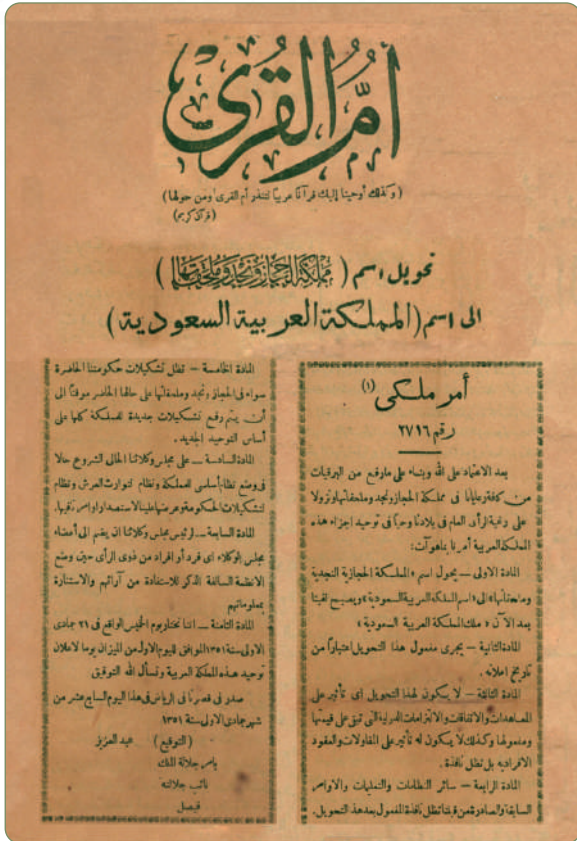 أم القرى
(وكذلك أوحينا إليك قرآنا عربيا لتنذر أم القرى ومن حولها)
(قرآن كريم)
تحويل اسم (مملكة الحجاز ونجد وملحقاتها)
الى اسم (المملكة العربية السعودية)
أمر ملكى (١)
رقم ٢٧١٦
بعد الاعتماد على الله وبناء على ما رفع من البرقيات
من كافة رعايانا فى مملكة الحجاز ونجد وملحقاتها ونزولا
على رغبة الرأى العام فى بلادنا وحبا فى توحيد اجزاء هذه
المملكة العربية أمرنا بما هو آت:
المادة الاولى – يحول اسم «المملكة الحجازية النجدية
وملحقاتها» الى «اسم المملكة العربية السعودية» ويصبح لقبنا
بعد الآن «ملك المملكة العربية السعودية»
المادة الثانية – يجرى مفعول هذا التحويل اعتبارا من
تاريخ اعلانه.
المادة الثالثة – لا يكون لهذا التحويل اى تأثير على
المعاهدات والاتفاقات والالتزامات الدولية التى تبقى على قيمتها
ومفعولها وكذلك لا يكون له تأثير على المقاولات والعقود
الافرادية بل تظل نافذة.
المادة الرابعة – سائر النظامات والتعليمات والاوامر
السابقة والصادرة من قبلنا تظل نافذة المفعول بعد هذا التحويل.
المادة الخامسة – تظل تشكيلات حكومتنا الحاضرة
سواء فى الحجاز ونجد وملحقاتها على حالها الحاضر موقتا الى
أن يتم وضع تشكيلات جديدة للمملكة كلها على
أساس التوحيد الجديد.
المادة السادسة – على مجلس وكلائنا الحالى الشروع حالا
فى وضع نظام أساسى للمملكة ونظام لتوارث العرش ونظام
لتشكيلات الحكومة وعرضها علينا لاستصدار اوامرنا فيها.
المادة السابعة – لرئيس مجلس وكلائنا ان يضم الى أعضاء
مجلس الوكلاء اى فرد أو افراد من ذوى الرأى حين وضع
الانظمة السالفة الذكر للاستفادة من آرائهم والاستنارة
بمعلوماتهم
المادة الثامنة – اننا نختار يوم الخميس الواقع فى ٢١ جمادى
الاولى سنة ١٣٥١ الموافق لليوم الاول من الميزان يوما لاعلان
توحيد هذه المملكة العربية ونسأل الله التوفيق
صدر فى قصرنا فى الرياض فى هذا اليوم السابع عشر من
شهر جمادى الاولى سنة ١٣٥١
(التوقيع) عبد العزيز
بامر جلالة الملك
نائب جلالته
فيصل